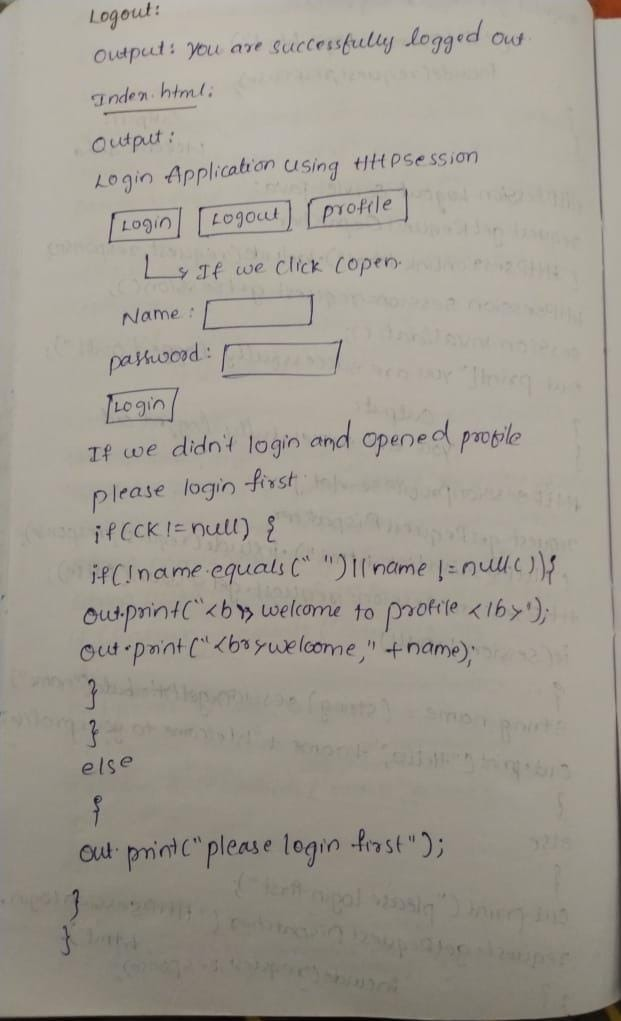 Logout:
Output: You are successfully logged out.
Index.html:
Output:
Login Application using HttpSession
Login Logout profile
If we click (open.
Name:
password:
Login
If we didn't login and opened profile
please login first
if(ck!=null) {
if(!name.equals(" ")||name!=null()){
out.print("<b>> welcome to profile </b>");
out.print("<br>welcome,"+name);
}
}
else
{
out.print("please login first");
}
}